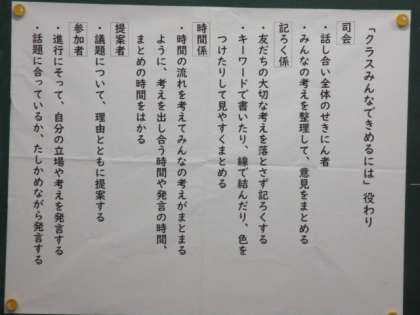 「クラスみんなできめるには」役わり
司会
・話し合い全体のせきにん者
・みんなの考えを整理して、意見をまとめる
記ろく係
・友だちの大切な考えを落とさず記ろくする
・キーワードで書いたり、線で結んだり、色を
つけたりして見やすくまとめる
時間係
・時間の流れを考えてみんなの考えがまとまる
ように、考えを出し合う時間や発言の時間、
まとめの時間をはかる
提案者
・議題について、理由とともに提案する
参加者
・進行にそって、自分の立場や考えを発言する
・話題に合っているか、たしかめながら発言する